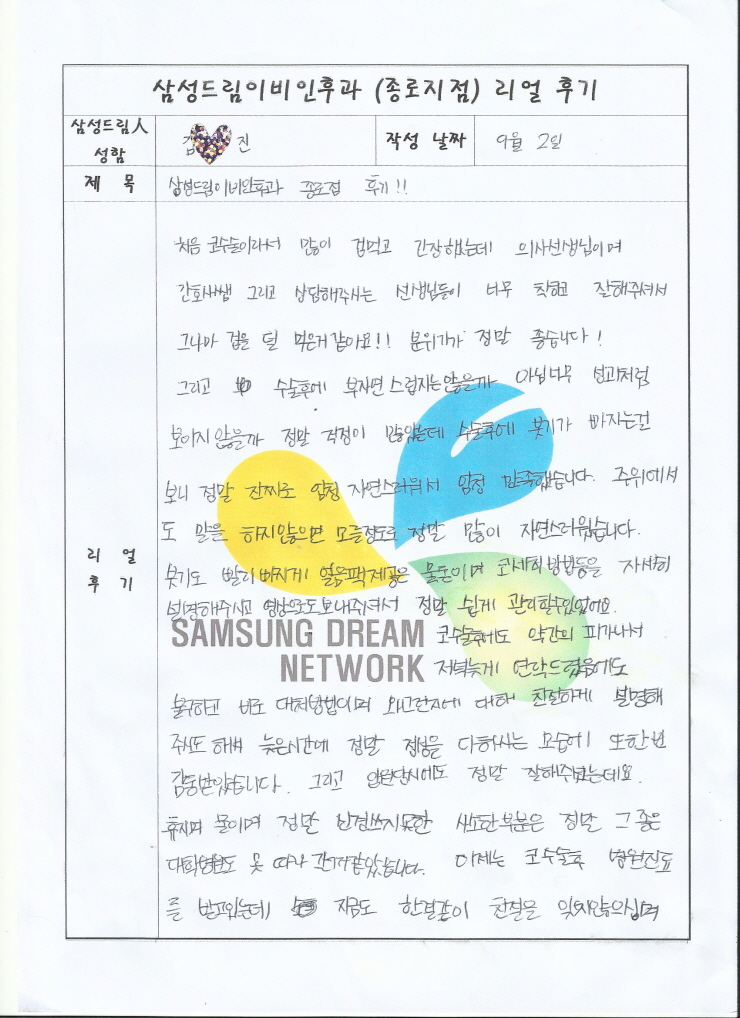 삼성드림이비인후과 (종로지점) 리얼 후기
삼성드림人 성함
김 진
작성 날짜
9월 2일
제 목
삼성드림이비인후과 종로점 후기!!
리 얼
후 기
처음 코수술이라서 많이 겁먹고 긴장했는데 의사선생님이며
간호사쌤 그리고 상담해주시는 선생님들이 너무 착하고 잘해주셔서
그나마 겁을 덜 먹은거같아요!! 분위기가 정말 좋습니다!
그리고 수술후에 부자연스럽지는않을까 아님너무 성괴처럼
보이지 않을까 정말 걱정이 많았는데 수술후에 붓기가 빠지는걸
보니 정말 진짜로 엄청 자연스러워서 엄청 만족했습니다. 주위에서
도 말을 하지않으면 모를정도로 정말 많이 자연스러웠습니다.
붓기도 빨리 빠지게 얼음팩제공은 물론이며 코세척방법등을 자세히
설명해주시고 영상으로도보내주셔서 정말 쉽게 관리할수있었어요.
SAMSUNG DREAM
NETWORK
코수술후에도 약간의 피가나서
저녁늦게 연락드렸음에도
불구하고 바로 대처방법이며 왜그런지에 대해 친절하게 설명해
주셔도 해서 늦은시간에 정말 정성을 다하시는 모습에 또한번
감동받았습니다. 그리고 입원당시에도 정말 잘해주셨는데요.
휴지며 물이며 정말 신경쓰지못한 사소한부분은 정말 그 좋은
대학병원도 못 따라 간거같았습니다. 이제는 코수술후 병원진료
를 받고있는데 지금도 한결같이 친절을 잊지않으시며